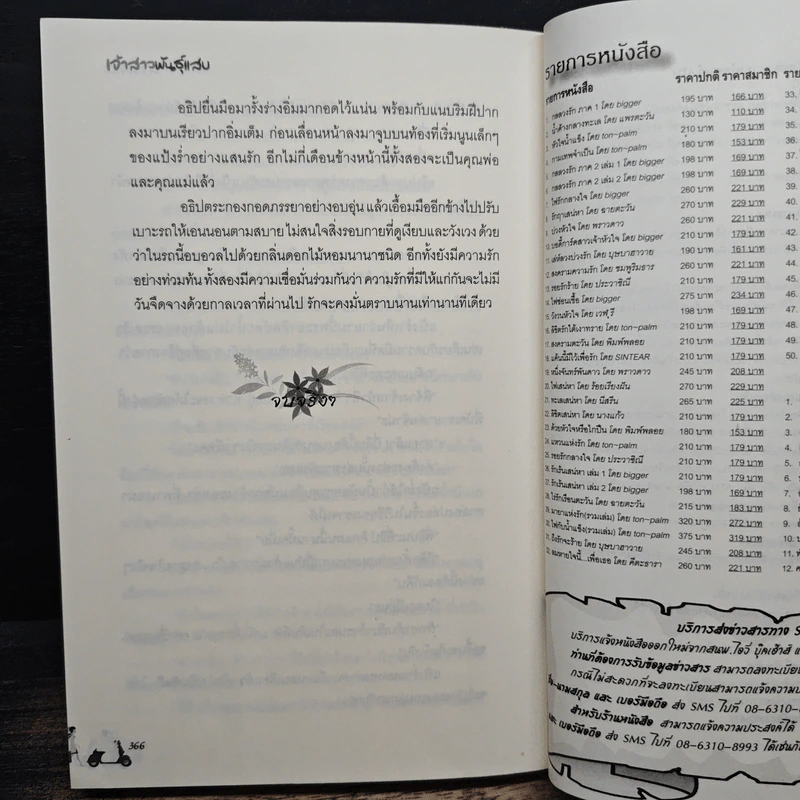 เจ้าสาวพันธุ์แสบ
อธิปยื่นมือมารั้งร่างอิ่มมากอดไว้แน่น พร้อมกับแนบริมฝีปาก
ลงมาบนเรียวปากอิ่มเต็ม ก่อนเลื่อนหน้าลงมาจูบบนท้องที่เริ่มนูนเล็กๆ
ของแป้งร่ำอย่างแสนรัก อีกไม่กี่เดือนข้างหน้านี้ทั้งสองจะเป็นคุณพ่อ
และคุณแม่แล้ว
อธิปตระกองกอดภรรยาอย่างอบอุ่น แล้วเอื้อมมืออีกข้างไปปรับ
เบาะรถให้เอนนอนตามสบาย ไม่สนใจสิ่งรอบกายที่ดูเงียบและวังเวง ด้วย
ว่าในรถนี้อบอวลไปด้วยกลิ่นดอกไม้หอมนานาชนิด อีกทั้งยังมีความรัก
อย่างท่วมท้น ทั้งสองมีความเชื่อมั่นร่วมกันว่า ความรักที่มีให้แก่กันจะไม่มี
วันจืดจางด้วยกาลเวลาที่ผ่านไป รักจะคงมั่นตราบนานเท่านานทีเดียว
จบจริงๆ
366
รายการหนังสือ
รายการหนังสือ ราคาปกติ ราคาสมาชิก
กลลวงรัก ภาค 1 โดย bigger 195 บาท 166 บาท 33.
น้ำค้างกลางทะเล โดย แพรตะวัน 130 บาท 110 บาท 34.
หัวใจน้ำแข็ง โดย ton-palm 210 บาท 179 บาท 35.
กามเทพจำเป็น โดย ton-palm 180 บาท 153 บาท 36.
กลลวงรัก ภาค 2 เล่ม 1 โดย bigger 198 บาท 169 บาท 37.
กลลวงรัก ภาค 2 เล่ม 2 โดย bigger 198 บาท 169 บาท 38.
ไฟรักกลางใจ โดย bigger 260 บาท 221 บาท 39.
รักฤาเสน่หา โดย ฉายตะวัน 270 บาท 229 บาท 40.
บ่วงหัวใจ โดย พราวดาว 260 บาท 221 บาท 41.
บอดี้การ์ดสาวเจ้าหัวใจ โดย bigger 210 บาท 179 บาท 42.
เล่ห์ลวงบ่วงรัก โดย บุษบาฮาวาย 190 บาท 161 บาท 43.
สงครามความรัก โดย ชมพูริมธาร 260 บาท 221 บาท 44.
รอยรักร้าย โดย ประวาชินี 210 บาท 179 บาท 45.
ไฟซ่อนเชื้อ โดย bigger 275 บาท 234 บาท 46.
198 บาท 169 บาท 47.
ลิขิตรักใต้เงาทราย โดย ton-palm 210 บาท 179 บาท 48.
สงครามตะวัน โดย พิมพ์พลอย 210 บาท 179 บาท 49.
แค้นนี้มีไว้เพื่อรัก โดย SINTEAR 210 บาท 179 บาท 50.
หนึ่งจันทร์พันดาว โดย พราวดาว 245 บาท 208 บาท
ไฟเสน่หา โดย ร้อยเรียงฝัน 270 บาท 229 บาท
ทะเลเสน่หา โดย นีสรีน 265 บาท 225 บาท 1.
ลิขิตเสน่หา โดย นางแก้ว 210 บาท 179 บาท 2.
ด้วยหัวใจหรือไกปืน โดย พิมพ์พลอย 180 บาท 153 บาท 3.
แหวนแห่งรัก โดย ton-palm 210 บาท 179 บาท 4.
รอยรักกลางใจ โดย ประวาชินี 210 บาท 179 บาท 5.
รักเร้นเสน่หา เล่ม 1 โดย bigger 210 บาท 179 บาท 6.
รักเร้นเสน่หา เล่ม 2 โดย bigger 198 บาท 169 บาท 7.
ไร้รักเรือนตะวัน โดย ฉายตะวัน 215 บาท 183 บาท 8.
มายาแห่งรัก(รวมเล่ม) โดย ton-palm 320 บาท 272 บาท 9.
ไฟกับน้ำแข็ง(รวมเล่ม) โดย ton-palm 375 บาท 319 บาท 10.
โดย บุษบาฮาวาย 245 บาท 208 บาท 11.
ลมหายใจนี้...เพื่อเธอ โดย คีตะธารา 260 บาท 221 บาท 12.
บริการส่งข่าวสารทาง S
บริการแจ้งหนังสือออกใหม่จากสนพ.ไอวี่ บุ๊คเฮ้าส์
ท่านที่ต้องการรับข้อมูลข่าวสาร สามารถลงทะเบียน
กรณีไม่สะดวกที่จะลงทะเบียนสามารถแจ้งความ
ชื่อ-นามสกุล และ เบอร์มือถือ ส่ง SMS ไปที่ 08-6310-
สำหรับร้านหนังสือ สามารถแจ้งความประสงค์ได้
และ เบอร์มือถือ ส่ง SMS ไปที่ 08-6310-8993 ได้เช่นกัน